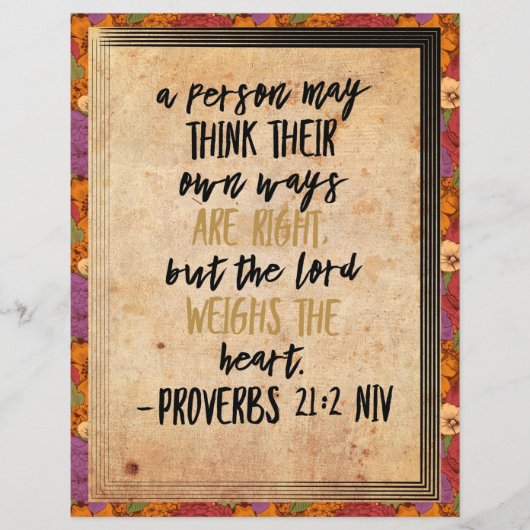 a person may
THINK THEIR
own ways
ARE RIGHT,
but the lord
WEIGHS THE
heart.
-PROVERBS 21:2 NIV